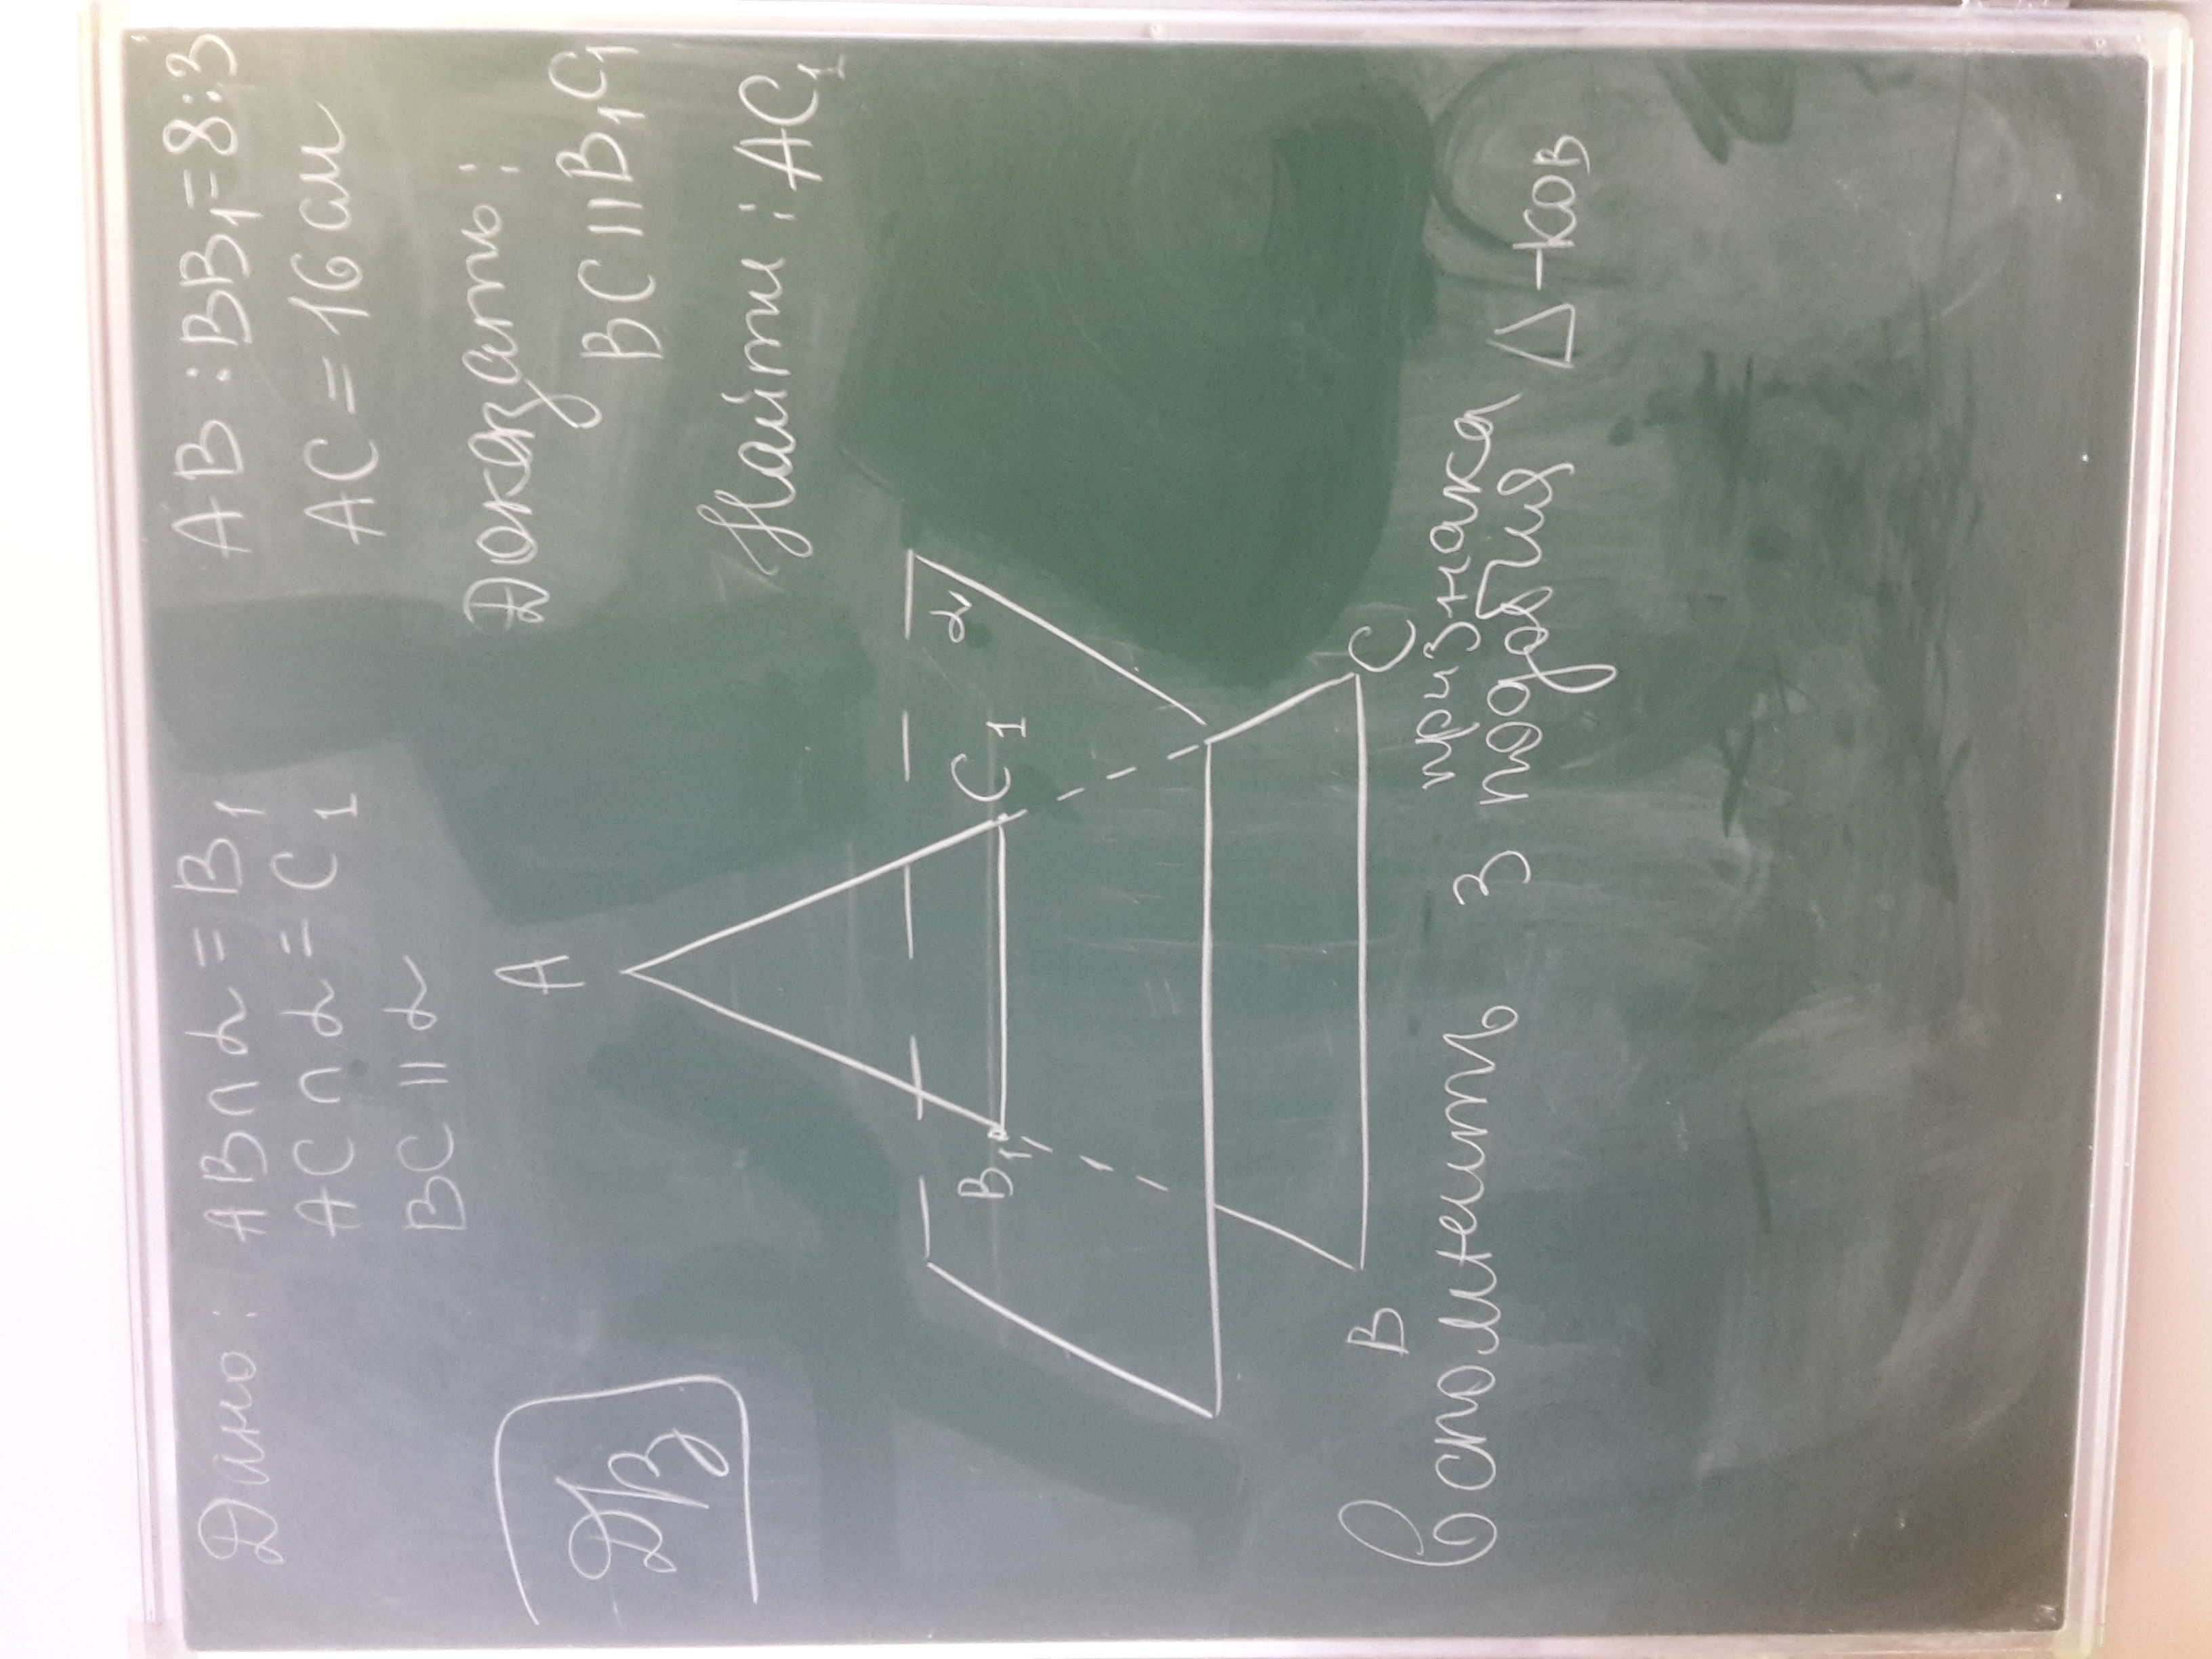 Дано: AB∩α=B₁
AC∩α=C₁
BC||α
AB:BB₁=8:3
AC=16см
Доказать:
BC||B₁C₁
Найти: AC₁
ДЗ
A
α
B₁
C₁
B
C
Вспомнить 3 признака
подобия Δ-ков